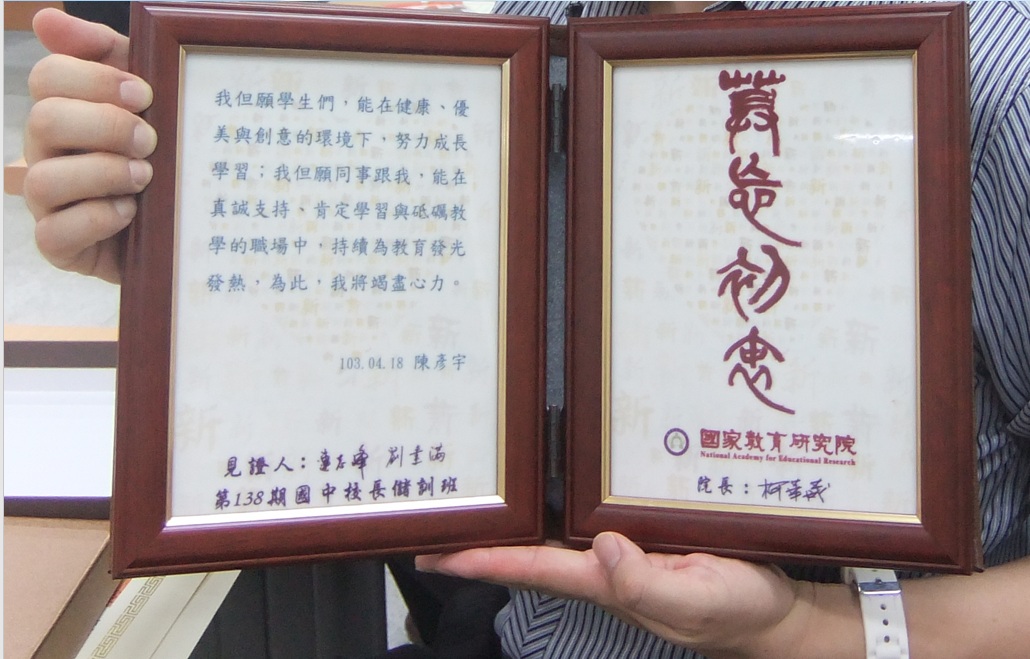 我但願學生們，能在健康、優
美與創意的環境下，努力成長
學習；我但願同事跟我，能在
真誠支持、肯定學習與砥礪教
學的職場中，持續為教育發光
發熱，為此，我將竭盡心力。
103.04.18 陳彥宇
見證人：
第138期國中校長儲訓班
莫忘初衷
國家教育研究院
National Academy for Educational Research
院長：柯華葳